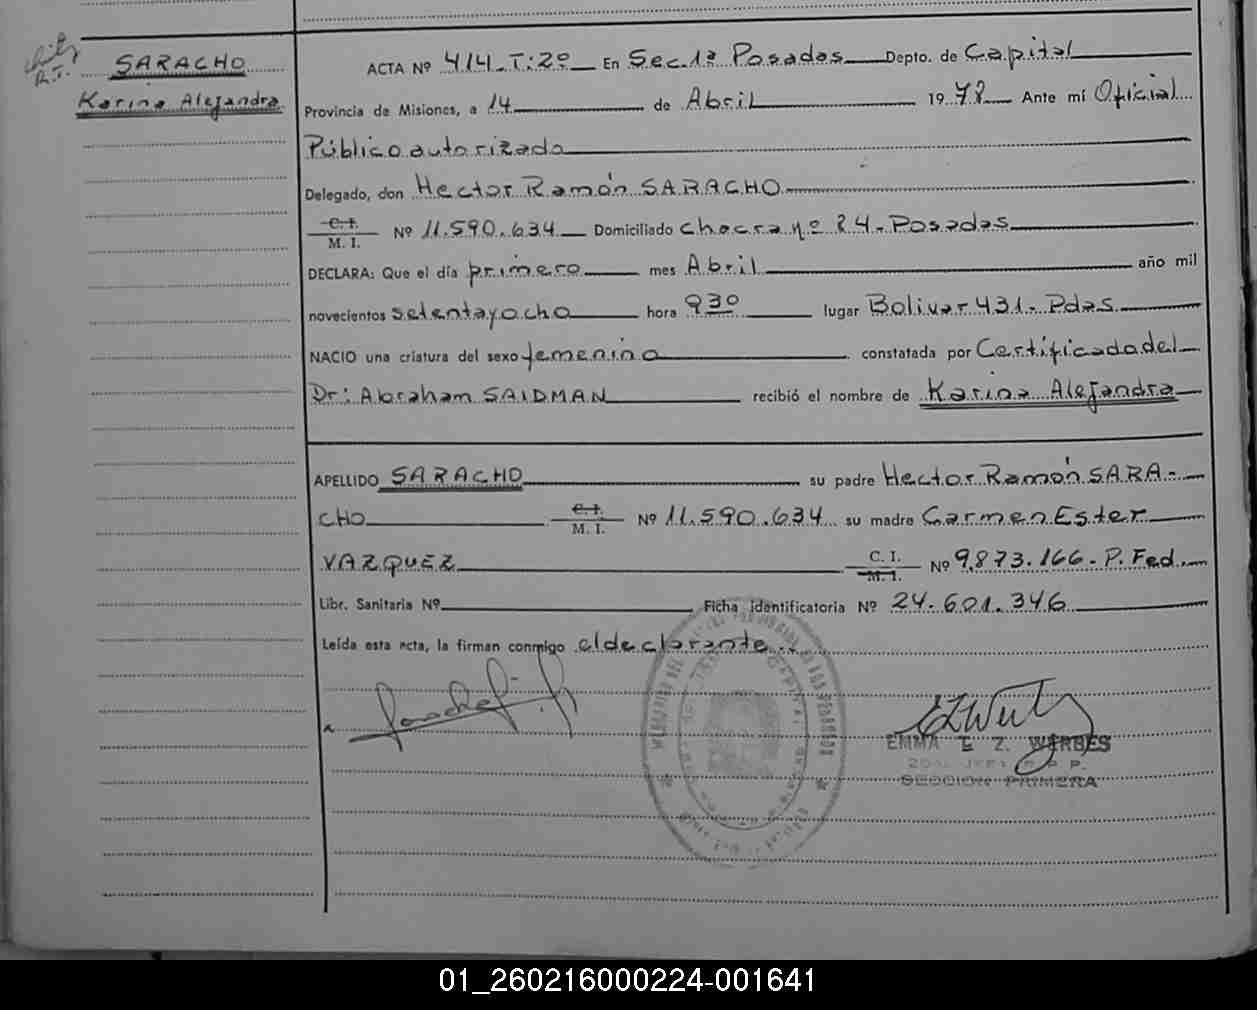 SARACHO
Karina Alejandra
ACTA Nº 414 T:2º En Sec. 1ª Posadas Depto. de Capital
Provincia de Misiones, a 14 de Abril 1978 Ante mí Oficial
Público autorizado
Delegado, don Hector Ramón SARACHO
C. I.
M. I. Nº 11.590.634 Domiciliado chacra nº 24 - Posadas
DECLARA: Que el día primero mes Abril año mil
novecientos setenta y ocho hora 9 30 lugar Bolivar 431 - Pdas.
NACIO una criatura del sexo femenino constatada por Certificado del
Dr: Abraham SAIDMAN recibió el nombre de Karina Alejandra
APELLIDO SARACHO su padre Hector Ramón SARA-
CHO C. I. M. I. Nº 11.590.634 su madre Carmen Ester
VAZQUEZ C. I. M. I. Nº 9.873.166 - P. Fed.
Libr. Sanitaria Nº Ficha identificatoria Nº 24.601.346
Leída esta acta, la firman conmigo el declarante
EMMA E. Z. WERBES
SECCION PRIMERA
01_260216000224-001641